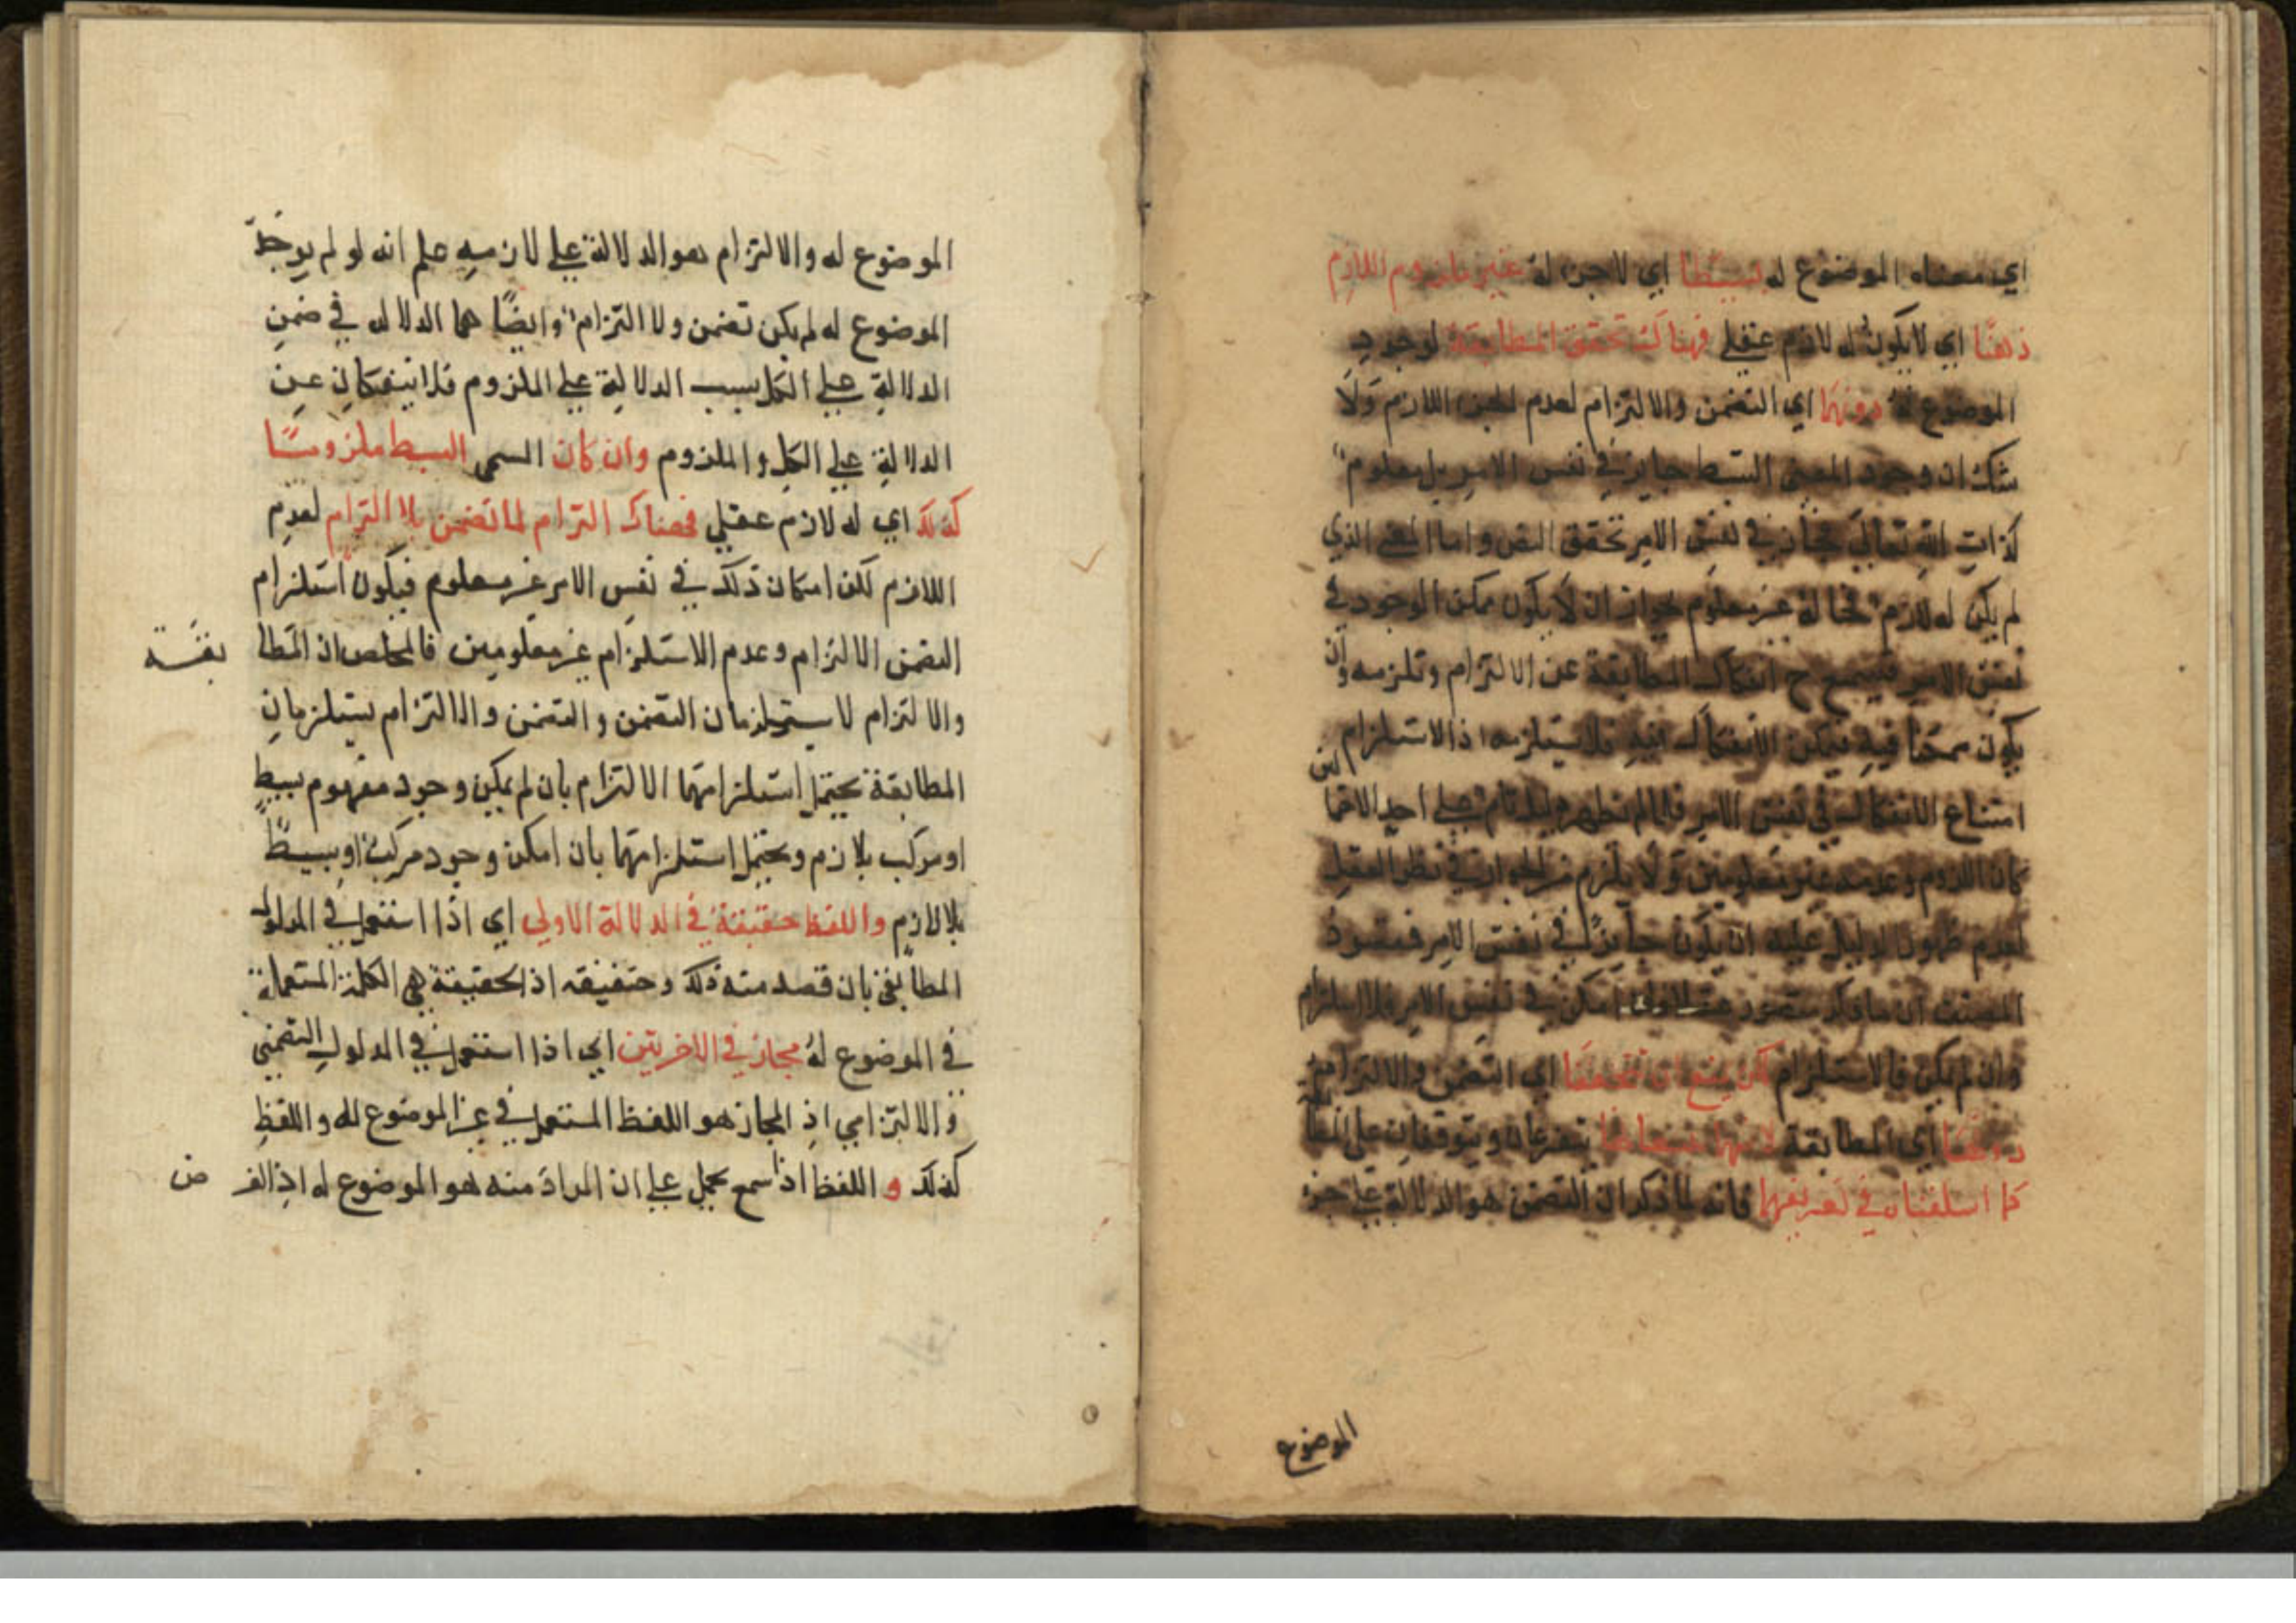 اي معناه الموضوع له بسيطا اي لا جزء له غير ملزوم اللازم
ذهنا اي لا يكون له لازم عقلي فهناك تحقق المطابقة لوجود
الموضوع له دونهما اي التضمن والالتزام لعدم الجزء اللازم ولا
شك ان وجود المعنى البسيط جايز في نفس الامر بل معلوم
كذات الله تعالى في نفس الامر تحقق النقض واما المعنى الذي
لم يكن له لازم غير معلوم لجواز ان لا يكون ممكن الوجود في
نفس الامر ح انفكاك المطابقة عن الالتزام وتلزمه وان
يكون ممتنعا فيه فيمكن الانفكاك فيه فلا يستلزمه اذ الاستلزام
امتناع الانفكاك في نفس الامر فلما لم يظهر على احد الاحتما لين
كان اللزوم وعدمه غير معلومين ولا يلزم من الجواز في نظر العقل
لعدم ظهور الدليل عليه ان يكون جايزا في نفس الامر فمقصود
المصنف ان امكن في نفس الامر فلا استلزام
وان لم يكن فالاستلزام لكن يمتنع ان تتحققا اي التضمن والالتزام من
دونها اي المطابقة لانهما يتفرعان ويتوقفان على المطا بقة
كما اسلفناه في تعريفهما فانه لما ذكر ان التضمن هو الدلالة على جزء
الموضوع
الموضوع له والالتزام هو الدلالة على لازمه علم انه لو لم يوجد
الموضوع له لم يكن تضمن ولا التزام وايضًا هما الدلالة في ضمن
الدلالة على الكل بسبب الدلالة على الملزوم فلا ينفكان عن
الدلالة على الكل والملزوم وان كان المسمى البسيط ملزومًا
كذلك اي له لازم عقلي فهناك التزام لما تضمن بلا التزام لعدم
اللازم لكن امكان ذلك في نفس الامر غير معلوم فيكون استلزام
التضمن الالتزام وعدم الاستلزام غير معلومين فالملخص ان المطا بقة
والالتزام لا يستلزمان التضمن والتضمن والالتزام يستلزمان
المطابقة يحتمل استلزامهما الالتزام بان لم يمكن وجود مفهوم بسيط
او مركب بلا لازم ويحتمل استلزامهما بان امكن وجود مركب او بسيط
بلا لازم واللفظ حقيقة في الدلالة الاولى اي اذا استعمل في المدلول
المطابقي بان قصد منه ذلك وحقيقته اذ الحقيقة هي الكلمة المستعملة
في الموضوع له مجاز في الاخريتين اي اذا استعمل في المدلول التضمني
والالتزامي اذ المجاز هو اللفظ المستعمل في غير الموضوع له واللفظ
كذلك و اللفظ اذا سمع يحمل على ان المراد منه هو الموضوع له اذ الغر ض